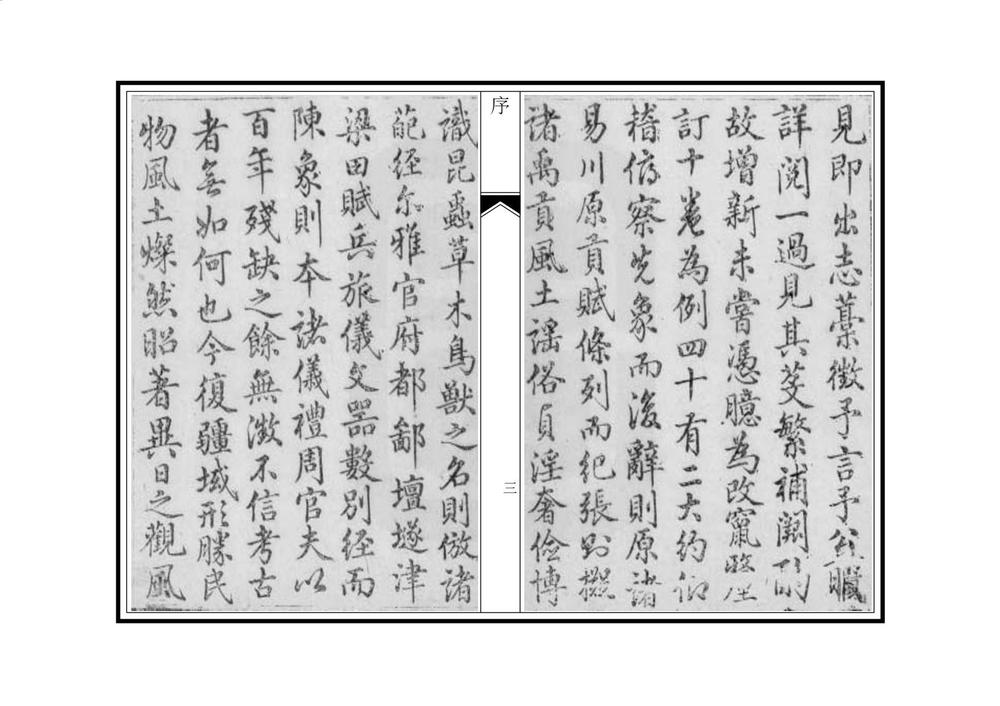 見即出志藁徵予言予公職
詳閱一過見其芟繁補闕
故增新未嘗憑臆為改竄
訂十卷為例四十有二大約仰
稽俯察先象而後辭則原諸
易川原貢賦條列而紀張則擬
諸禹貢風土謡俗貞淫奢儉博
序
三
識昆蟲草木鳥獸之名則倣諸
葩経尔雅官府都鄙壇遂津
梁田賦兵旅儀文器數別経而
陳彖則本諸儀禮周官夫以
百年殘缺之餘無徵不信考古
者無如何也今復疆域形勝民
物風土燦然昭著異日之觀風